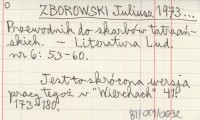 ZBOROWSKI Juliusz 1973:...
Przewodnik do skarbów tatrzań-
skich. – Literatura Lud.
nr 6: 53-60.
Jest to skrócona wersja
pracy tegoż w "Wierchach" 41:
173-180.